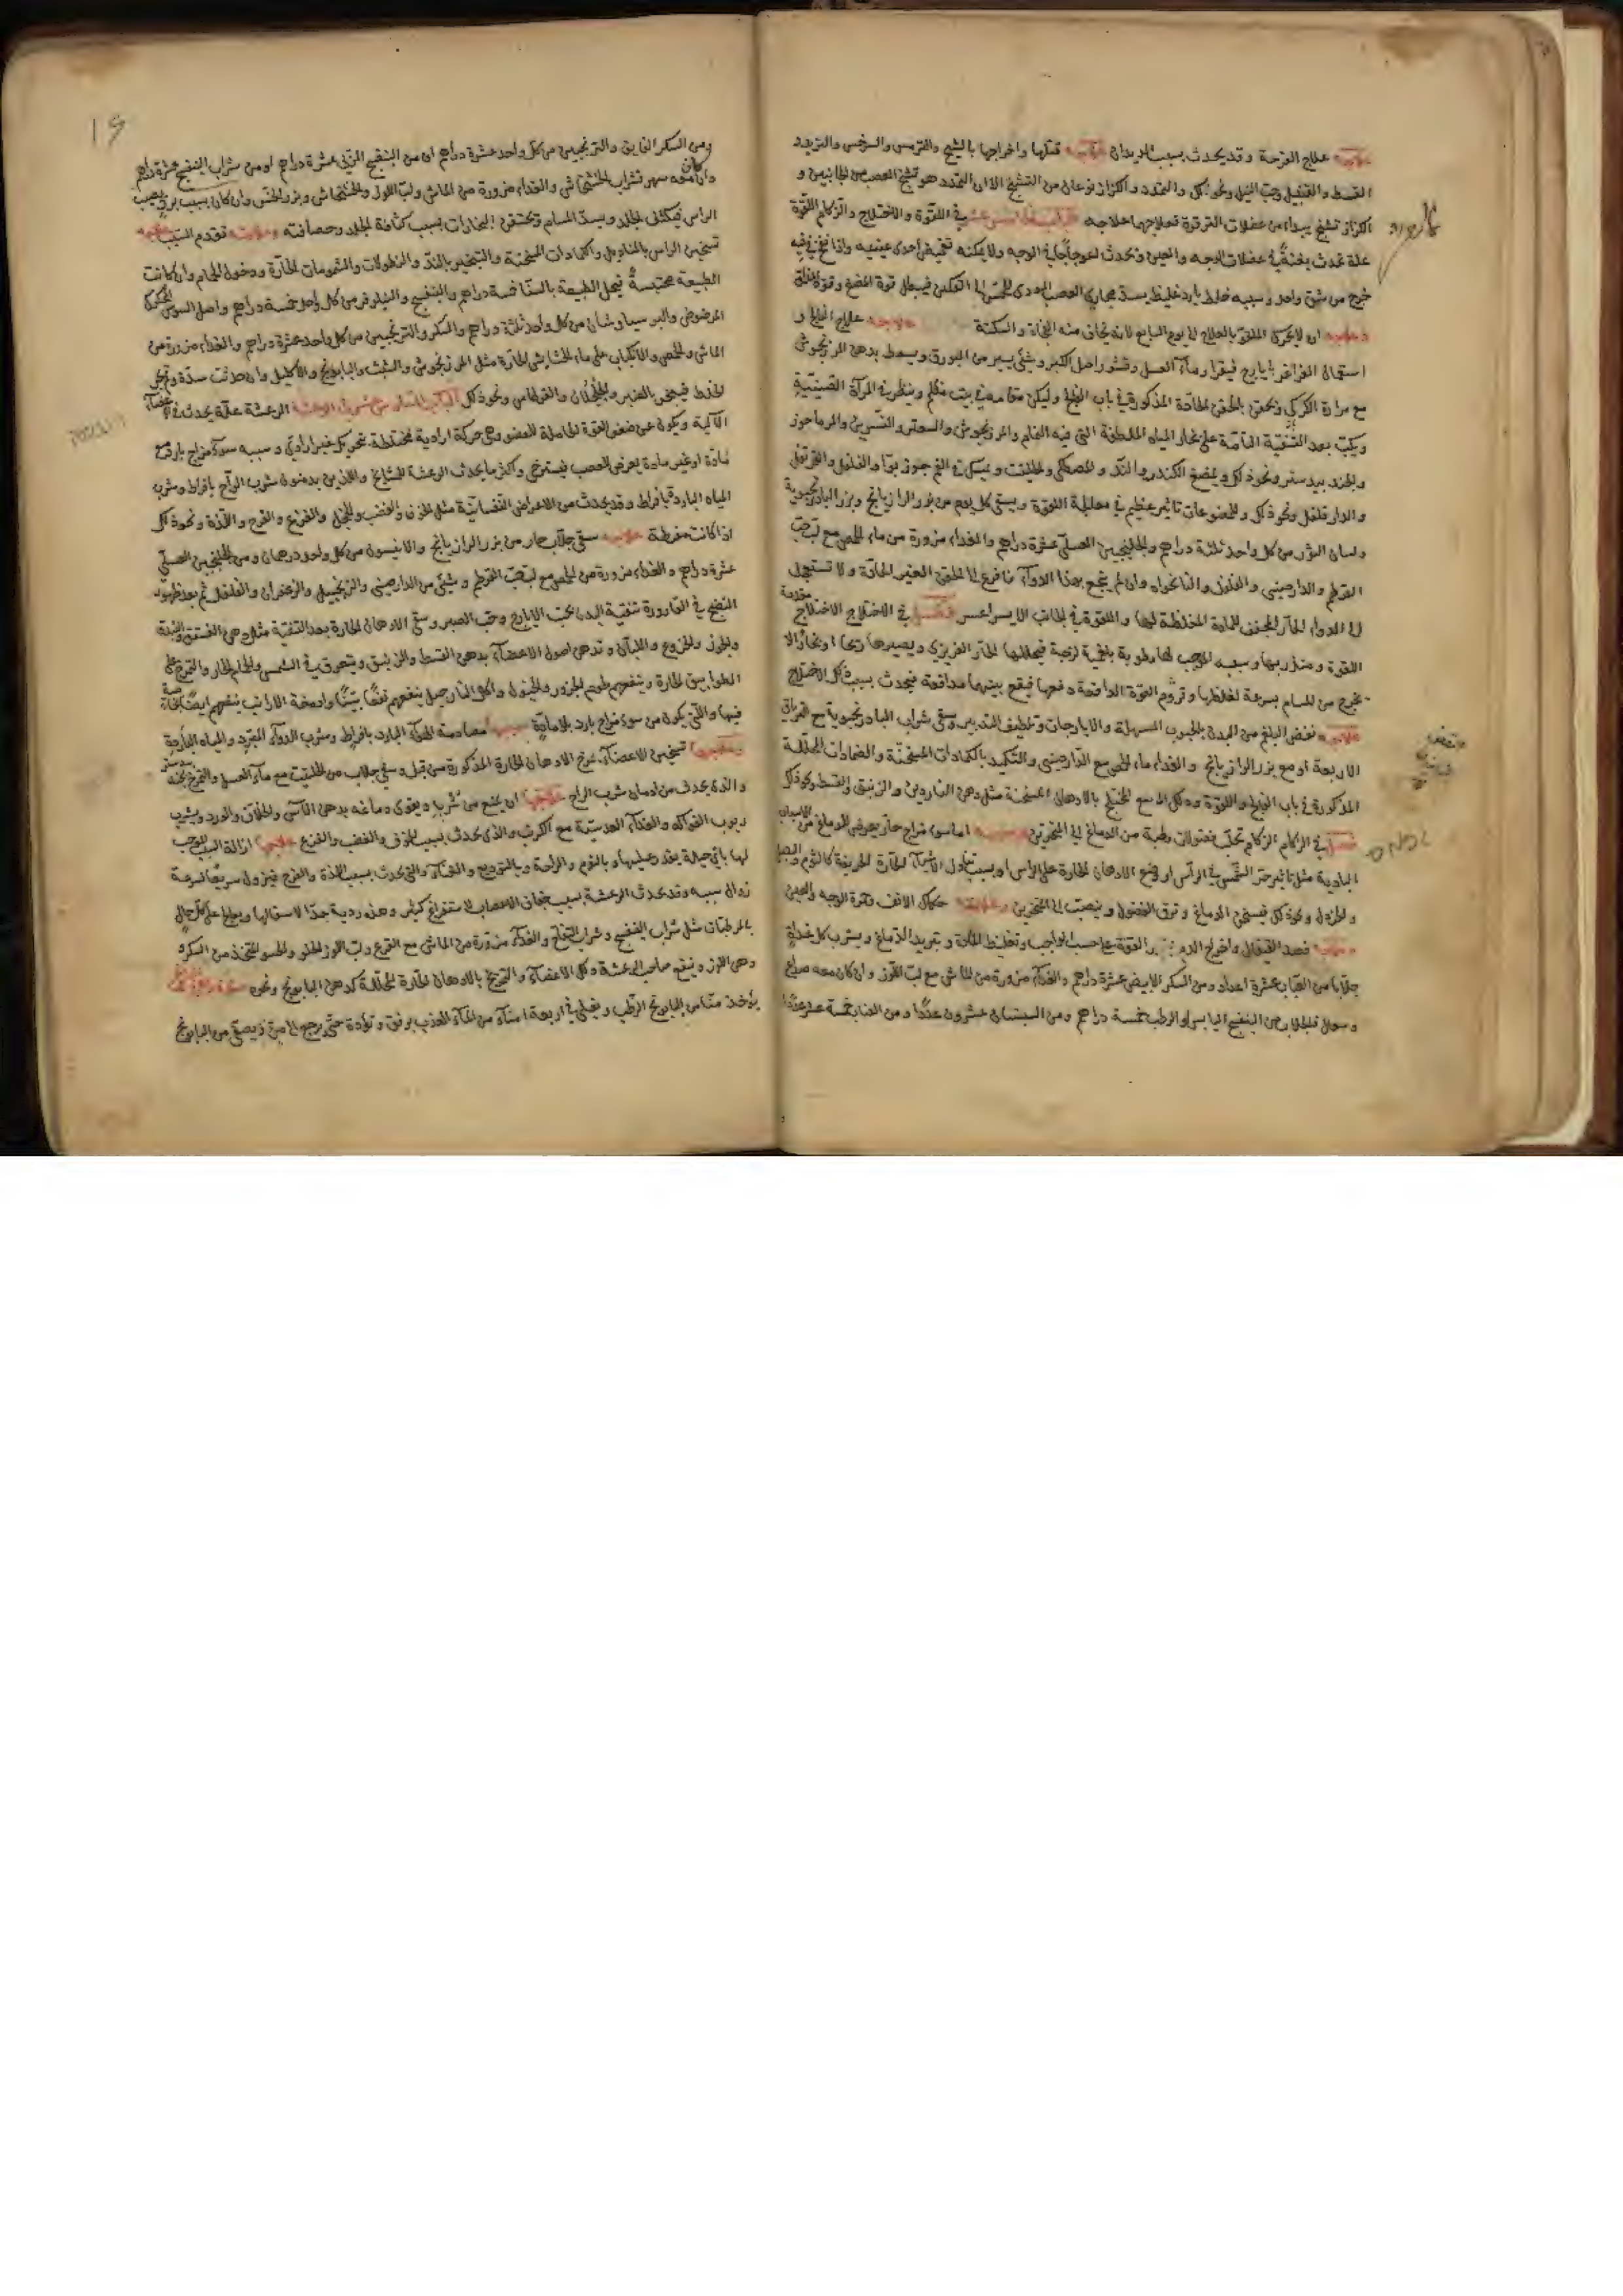 علاج القرحة وقد يحدث بسبب الديدان علاجه قتلها واخراجها بالشيح والترمس والسرخس والتربد و
القسط والقنبيل وحب النيل ونحو ذلك والتمدد والكزاز نوعان من التشنج الا ان التمدد هو تشنج العصب من الجانبين و
الكزاز تشنج يبداء من عضلات الترقوة فعلاجهما علاجه في اللقوة والاختلاج والزكام اللقوة
علة تحدث بغتة في عضلات الوجه والعين وتحدث اعوجاجا في الوجه ولا يمكنه تغميض احدى عينيه واذا نفخ من فيه
خرج من شق واحد وسببه خلط بارد غليظ يسد مجاري العصب المودى للحس الى الفكين فيبطل قوة المضغ وقوة
وعلاجه ان لا يحرك الملقو بالعلاج الى يوم السابع لانه يخاف منه الفجاة والسكتة علاجه علاج الفالج و
استعمال الغراغر بايارج فيقرا وماء العسل وقشور اصل الكبر وشيء يسير من البورق ويسعط بدهن المرزنجوش
مع مرارة الكركي ويحقن بالحقن الحادة المذكورة في باب الفالج وليكن مقامه في بيت مظلم وينظر في المرآة الصينية
ويكب بعد التنقية التامة على بخار المياه الملطفة التي فيه النمام والمرزنجوش والسعتر والنسرين والمرماحوز
والجندبيدستر ونحو ذلك ويمضغ الكندر والند والمصطكى والحلتيت ويمسك في الفم جوز بوا والفلفل والقرنفل
والدارفلفل ونحو ذلك وللمضوغات تاثير عظيم في معالجة اللقوة ويسقى كل يوم من بزر الرازيانج وبزر البادرنجبوية
ولسان الثور من كل واحد ثلثة دراهم والجلنجبين العسلي عشرة دراهم والغداء مزورة من ماء الحمص مع لب حب
القرطم والدارصيني والفلفل والنانخواه وان لم ينجع بهذا الدواء فافزع الى الحقن الغير الحادة ولا تستعجل
الى الدواء الحار المجفف للمادة المغلظة لها واللقوة في الجانب الايسر اعسر فصل في الاختلاج الاختلاج مقدمة
اللقوة ومنذر بها وسببه الموجب لها رطوبة بلغمية لزجة فيحللها الحار الغريزي ويصيرها ريحا او بخارا لا
يخرج من المسام بسرعة لغلظها وتروم القوة الدافعة دفعها فيقع بينهما مدافعة فيحدث بسبب ذلك الاختلاج
علاجه نفض البلغم من البدن بالحبوب المسهلة والايارجات وتلطيف التدبير وسقى شراب البادرنجبوية مع ترياق
الاربعة او مع بزر الرازيانج والغداء ماء الحمص مع الدارصيني والتكميد بالكمادات المسخنة والضمادات المحللة
المذكورة في باب الفالج واللقوة ودلك الموضع المختلج بالادهان المسخنة مثل دهن الناردين والزنبق والقسط ونحو ذلك
فصل في الزكام الزكام تحلب فضولات رطبة من الدماغ الى المنخرين وسببه اما سوء مزاج حار يعرض للدماغ من الاسباب
البادية مثل تاثير حر الشمس في الراس او وضع الادهان الحارة على الراس او بسبب تناول الاشياء الحارة الحريفة كالثوم والبصل
والخردل ونحو ذلك فيسخن الدماغ وترق الفضول وينصب الى المنخرين وعلامته حكاك الانف وحمرة الوجه والعين
وعلاجه فصد القيفال واخراج الدم بقدر القوة على حسب الواجب وتغليظ المادة وتبريد الدماغ ويشرب كل غداة
جلابا من العناب عشرة اعداد ومن السكر الابيض عشرة دراهم والغداء مزورة من الماش مع لب اللوز وان كان معه صداع
وسعال فجلاب من البنفسج اليابس او الرطب خمسة دراهم ومن السبستان عشرون عددا ومن العناب خمسة عشر عددا
19
ومن السكر الفايق والترنجبين من كل واحد عشرة دراهم او من البنفسج المربى عشرة دراهم او من شراب البنفسج عشرة دراهم
وان كان معه سهر فشراب الخشخاش والغداء مزورة من الماش ولب اللوز والخشخاش وبزر الخس وان كان بسبب برد يصيب
الراس فيكثف الجلد ويسد المسام وتحتقن البخارات بسبب كثافة الجلد وحصافته وعلامته تقدم السبب علاجه
تسخين الراس بالمناديل والكمادات المسخنة والتبخير بالند والنطولات والشمومات الحارة ودخول الحمام وان كانت
الطبيعة محتبسة فيحل الطبيعة بالسنا خمسة دراهم والبنفسج والنيلوفر من كل واحد خمسة دراهم واصل السوس المحكوك
المرضوض والبرسياوشان من كل واحد ثلثة دراهم والسكر والترنجبين من كل واحد عشرة دراهم والغداء مزورة من
الماش والحمص والانكباب على ماء الحشايش الحارة مثل المرزنجوش والشبث والبابونج والاكليل وان حدثت سدة
الخلط فيبخر بالعنبر والقرطاس ونحو ذلك الرعشة علة يحدث في الاعضاء
الآلية ويكون عن ضعف القوة الحاملة للعضو وهي حركة ارادية مختلطة بتحريك غير ارادي وسببه سوء مزاج بارد مع
مادة او غير مادة يعرض للعصب فيسترخي واكثر ما يحدث الرعشة للمشايخ والذين يدمنون شرب الراح بافراط وشرب
المياه الباردة بافراط وقد يحدث من الاعراض النفسانية مثل الحزن والغضب والخجل والفزع والفرح واللذة ونحو ذلك
اذا كانت مفرطة علاجه سقى جلاب حار من بزر الرازيانج والانيسون من كل واحد درهمان ومن الجلنجبين العسلي
عشرة دراهم والغداء مزورة من الحمص مع لب حب القرطم وشيء من الدارصيني والزنجبيل والزعفران والفلفل ثم بعد ظهور
النضج في القارورة تنقية البدن بحب الايارج وحب الصبر وسقى الادهان الحارة بعد التنقية مثل دهن الفستق
والجوز والخروع واللبان وتدهن اصول الاعضاء بدهن القسط والزنبق ويتعرق في الشمس والحمام الحار والتمرخ على
الطوابيق الحارة وينفعهم لحوم الجزور والخيول واكل النارجيل ينفعهم نفعا بينا وادمغة الارانب ينفعهم ايضا
فيها والتي يكون من سوء مزاج بارد بلا مادة سببها مصادمة الهواء البارد بافراط وشرب الدواء المبرد والمياه الباردة
وعلاجها تسخين الاعضاء بمرخ الادهان الحارة المذكورة من قبل وسقي جلاب من الحلتيت مع ماء العسل
والذي يحدث من ادمان شرب الراح علاجها ان يمنع من شربها ويقوى دماغه بدهن الآس والخلاف والورد ويشرب
ربوب الفواكه والغداء العدسية مع الكرنب والذي يحدث بسبب الحزن والغضب والفزع علاجها ازالة السبب الموجب
لها باي حيلة يقدر عليها وبالنوم والراحة وبالترويح والغناء والتي يحدث بسبب اللذة والفرح فيزول سريعا لسرعة
زوال سببه وقد يحدث الرعشة بسبب جفاف الاعصاب لاستفراغ كثير وهذه ردية جدا لاستفراغها ويعالج على كل حال
بالمرطبات مثل شراب البنفسج وشراب التفاح والغداء مزورة من الماش مع القرع ولب اللوز الحلو والحسو المتخذ من السكر و
دهن اللوز وينفع صاحب الرعشة دلك الاعضاء والتمريخ بالادهان الحارة المحللة كدهن البابونج ونحوه
يؤخذ منا من البابونج الرطب ويغلى في اربعة امناء من الماء العذب برفق وتؤدة حتى يرجع الى من ويصفى من البابونج